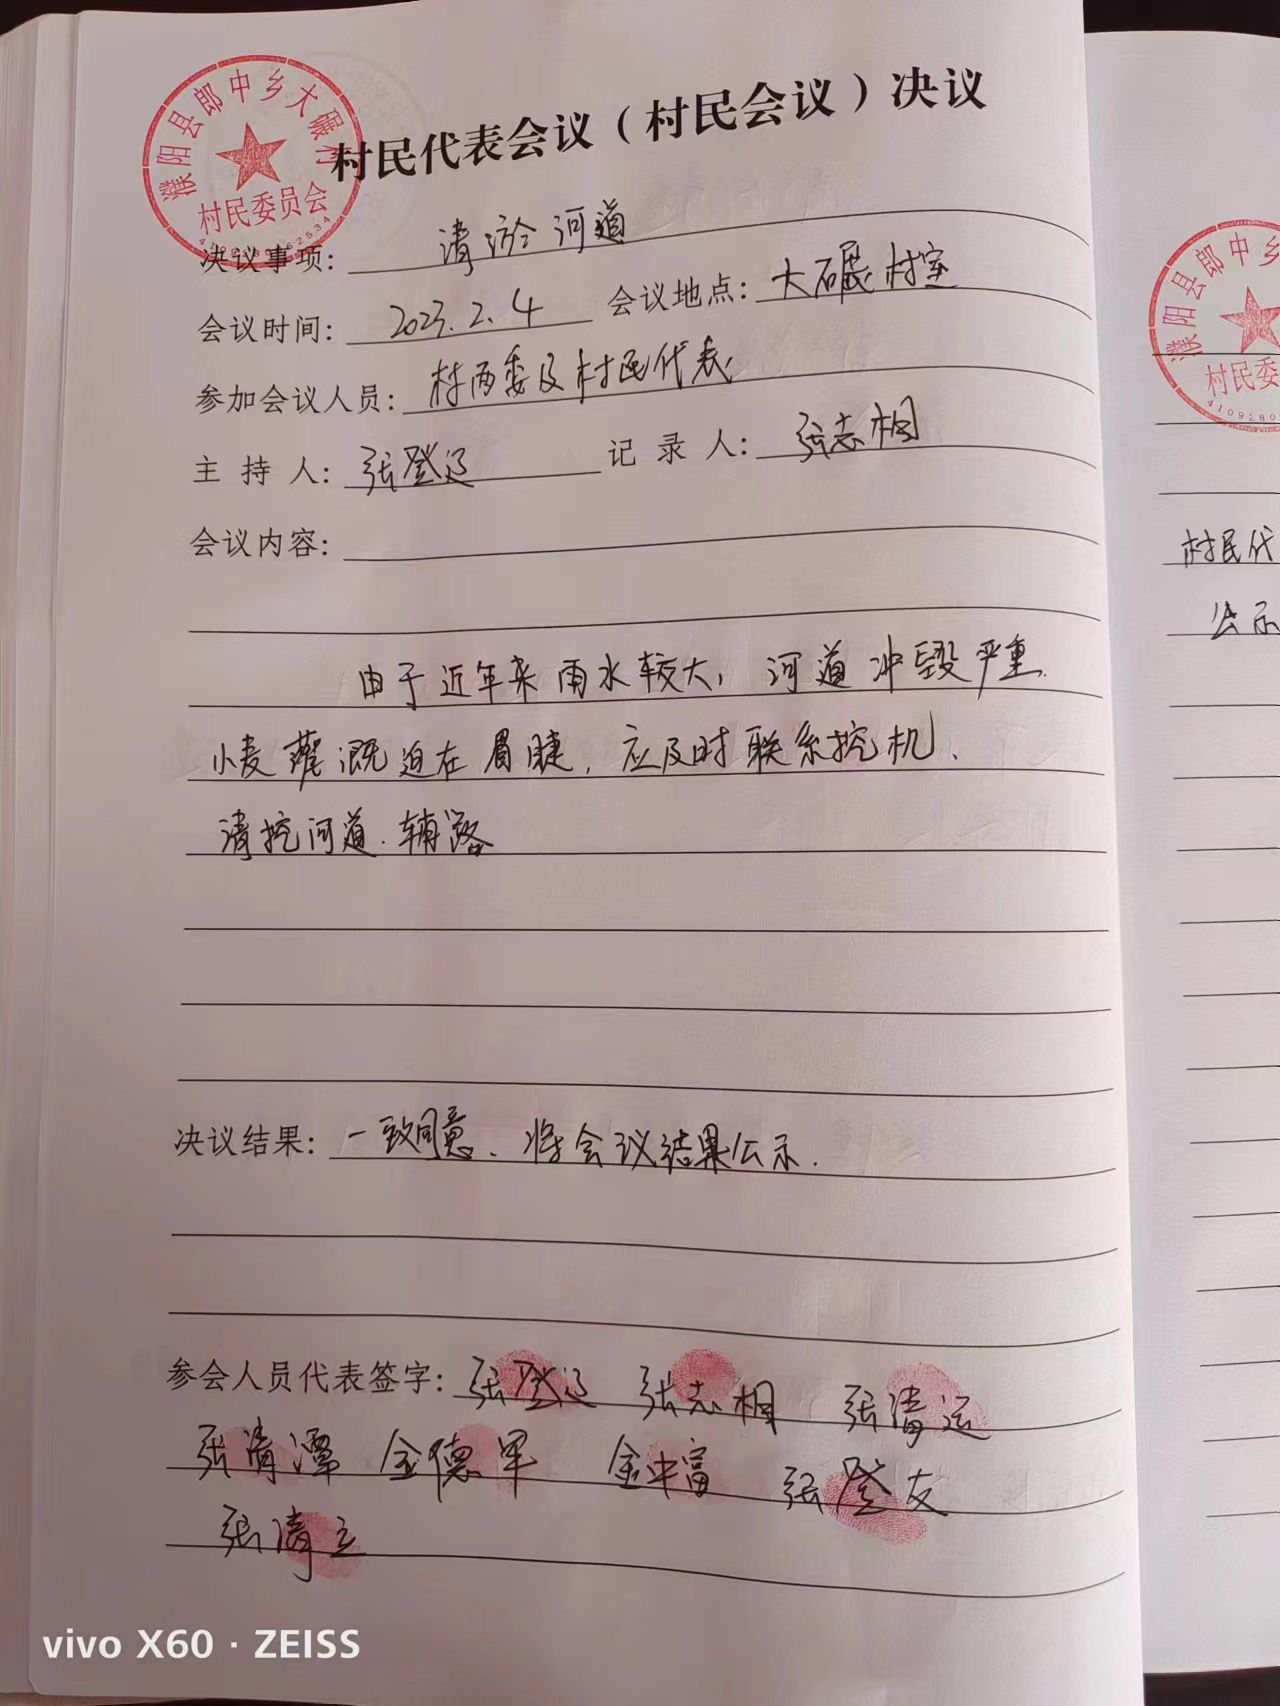 濮阳县郎中乡大碾村
村民委员会
村民代表会议（村民会议）决议
决议事项：清淤河道
会议时间：2023.2.4 会议地点：大碾村室
参加会议人员：村两委及村民代表
主持人：张登辽 记录人：张志相
会议内容：
由于近年来雨水较大，河道冲毁严重.
小麦灌溉迫在眉睫，应及时联系挖机、
清挖河道.辅路
决议结果：一致同意、将会议结果公示.
参会人员代表签字：张登辽 张志相 张清运
张清潭 金德军 金中富 张登友
张清立
濮阳县郎中乡
村民委
4109280
村民代
公示
vivo X60 · ZEISS